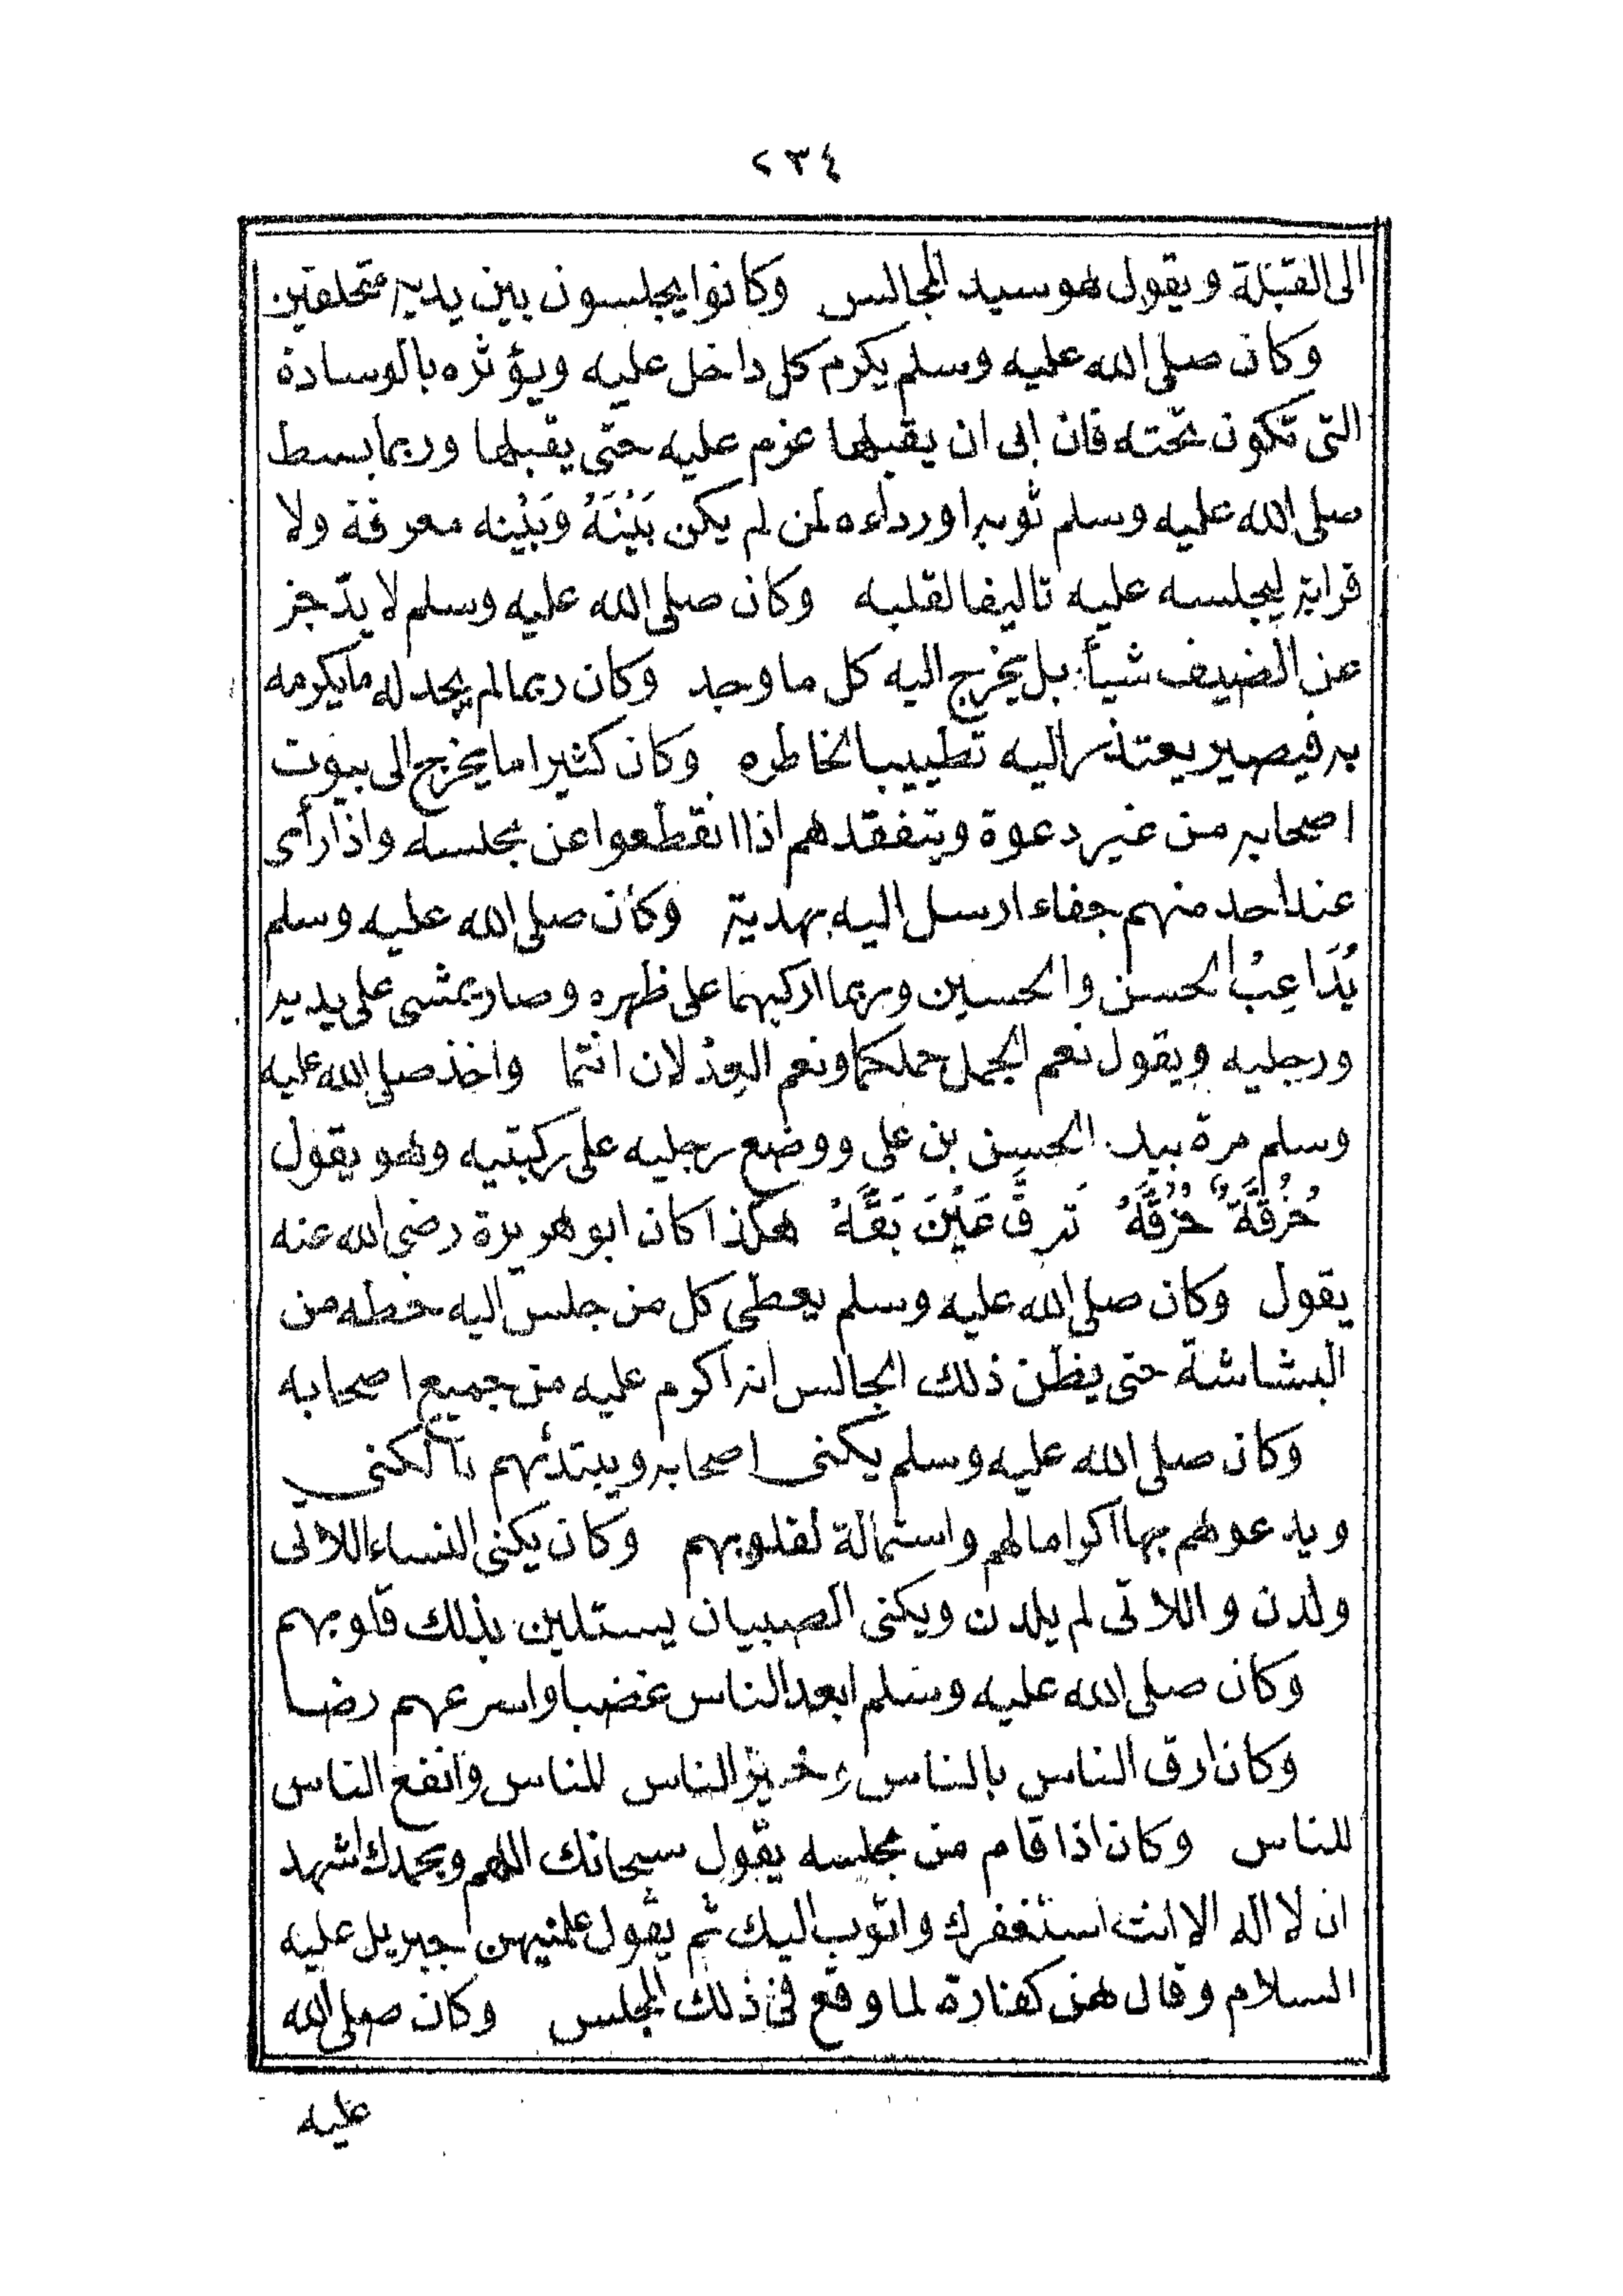 ٢٣٤
الى القبلة ويقول هو سيد المجالس وكانوا يجلسون بين يديه متحلقين
وكان صلى الله عليه وسلم يكرم كل داخل عليه ويؤثره بالوسادة
التى تكون تحته فان ابى ان يقبلها عزم عليه حتى يقبلها وربما بسط
صلى الله عليه وسلم ثوبه او رداءه لمن لم يكن بَيْنَهُ وَبَيْنه معرفة ولا
قرابة ليجلسه عليه تاليفا لقلبه وكان صلى الله عليه وسلم لا يدّخر
عن الضيف شيأ بل يخرج اليه كل ما وجد وكان ربما لم يجد له ما يكرمه
به فيصير يعتذر اليه تطييبا لخاطره وكان كثيرا ما يخرج الى بيوت
اصحابه من غير دعوة ويتفقدهم اذا انقطعوا عن مجلسه واذا رأى
عند احد منهم جفاء ارسل اليه بهدية وكان صلى الله عليه وسلم
يُدَاعِبُ الحسن والحسين وربما اركبهما على ظهره وصار يمشى على يديه
ورجليه ويقول نعم الجمل جملكما ونعم العِدْلان انتما واخذ صلى الله عليه
وسلم مرة بيد الحسن بن على ووضع رجليه على ركبتيه وهو يقول
حُزُقَّةٌ حُزُقَّهْ تَرقَّ عَيْنَ بَقَّهْ هكذا كان ابو هريرة رضى الله عنه
يقول وكان صلى الله عليه وسلم يعطى كل من جلس اليه حظه من
البشاشة حتى يظن ذلك الجالس انه اكرم عليه من جميع اصحابه
وكان صلى الله عليه وسلم يكنى اصحابه ويبتدئهم بالكنى
ويدعوهم بها اكراما لهم واستمالة لقلوبهم وكان يكنى النساء اللاتى
ولدن واللاتى لم يلدن ويكنى الصبيان يستلين بذلك قلوبهم
وكان صلى الله عليه وسلم ابعد الناس غضبا واسرعهم رضا
وكان ارق الناس بالناس وخير الناس للناس وانفع الناس
للناس وكان اذا قام من مجلسه يقول سبحانك اللهم وبحمدك اشهد
ان لا اله الا انت استغفرك واتوب اليك ثم يقول علمنيهن جبريل عليه
السلام وقال هن كفارة لما وقع فى ذلك المجلس وكان صلى الله
عليه